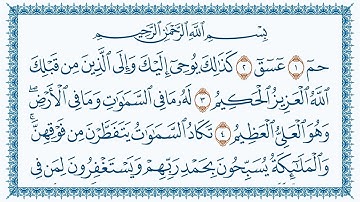 بِسْمِ اللَّهِ الرَّحْمَٰنِ الرَّحِيمِ
حمٓ ١ عٓسٓقٓ ٢ كَذَٰلِكَ يُوحِىٓ إِلَيْكَ وَإِلَى ٱلَّذِينَ مِن قَبْلِكَ
ٱللَّهُ ٱلْعَزِيزُ ٱلْحَكِيمُ ٣ لَهُۥ مَا فِى ٱلسَّمَٰوَٰتِ وَمَا فِى ٱلْأَرْضِ ۖ
وَهُوَ ٱلْعَلِىُّ ٱلْعَظِيمُ ٤ تَكَادُ ٱلسَّمَٰوَٰتُ يَتَفَطَّرْنَ مِن فَوْقِهِنَّ ۚ
وَٱلْمَلَٰٓئِكَةُ يُسَبِّحُونَ بِحَمْدِ رَبِّهِمْ وَيَسْتَغْفِرُونَ لِمَن فِى